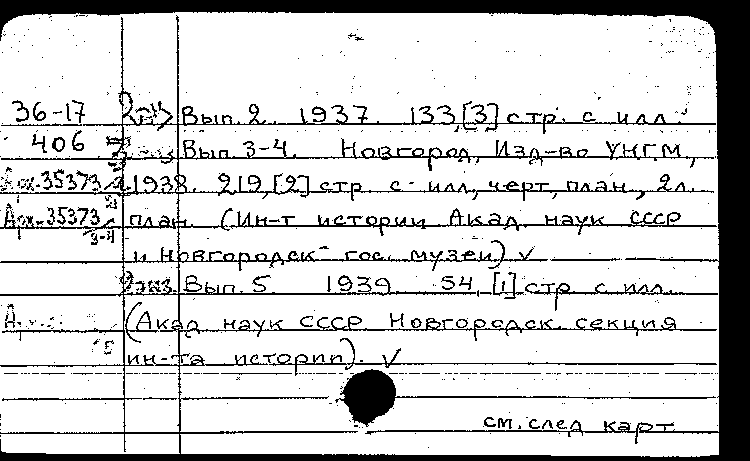 36-17 2экз Вып. 2. 1937. 133,[3] стр. с илл.
406 Вып. 3-4. Новгород, Изд-во УНГМ,
Арх.35373/2 1938. 219,[2] стр. с илл, черт, план., 2л.
Арх.35373/3-4 план. (Ин-т истории Акад. наук СССР
и Новгородск гос. музей) v
2экз. Вып. 5. 1939. 54,[1] стр. с илл.
(Акад наук СССР. Новгородск. секция
5 ин-та истории). v
см. след карт